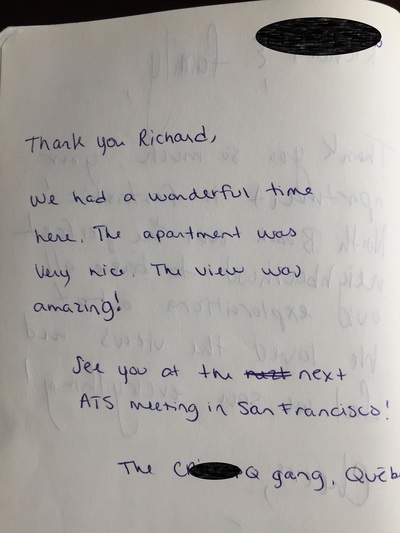 Thank you Richard,
We had a wonderful time
here. The apartment was
very nice. The view was
amazing!
See you at the next
ATS meeting in San Francisco!
The Q gang, Québ